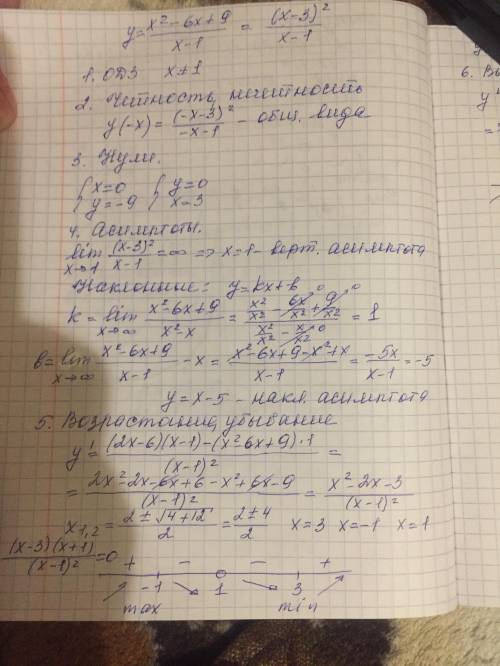 y = (x² - 6x + 9)/(x - 1) = (x - 3)²/(x - 1)
1. ОДЗ x ≠ 1
2. Четность, нечетность
y(-x) = (-x-3)²/(-x-1) - общ. вида
3. Нули.
{x=0 {y=0
{y=-9 {x=3
4. Асимптоты.
lim x→1 (x-3)²/(x-1) = ∞ => x=1 - верт. асимптота
Наклонные: y = kx + b
k = lim x→∞ (x² - 6x + 9)/(x² - x) = (x²/x² - 6x/x² + 9/x²)/(x²/x² - x/x²) = 1
b = lim x→∞ (x² - 6x + 9)/(x - 1) - x = (x² - 6x + 9 - x² + x)/(x - 1) = -5x/(x - 1) = -5
y = x - 5 - накл. асимптота
5. Возрастание, убывание
y' = ((2x-6)(x-1) - (x² - 6x + 9)·1)/(x-1)² =
= (2x² - 2x - 6x + 6 - x² + 6x - 9)/(x-1)² = (x² - 2x - 3)/(x-1)²
x1,2 = (2 ± √4+12)/2 = (2 ± 4)/2 x=3 x=-1 x=1
(x-3)(x+1)/(x-1)² = 0
+ - - +
-1 1 3
max min
6. Вы
y